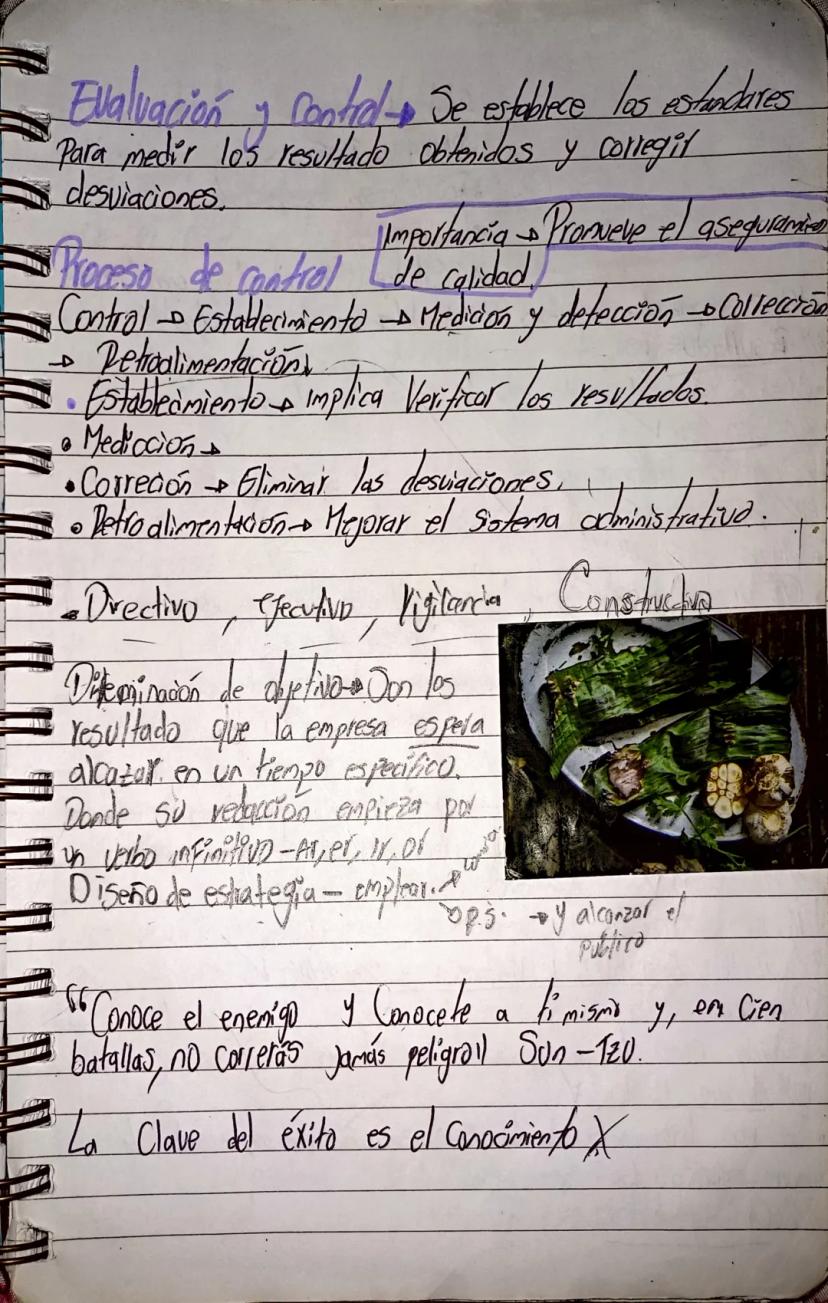 Evaluación y Control → Se establece los estandares
Para medir los resultado obtenidos y corregir
desviaciones.
Importancia → Promueve el aseguramien
de calidad.
Proceso de control
Control → Establecimiento → Medición y detección → Corrección
→ Retroalimentación
• Establecimiento → implica Verificar los resultados.
• Medicción →
• Correción → Eliminar las desviaciones.
• Retroalimentación → Mejorar el sistema administrativo.
Directivo, ejecutivo, Vigilancia, Constructivo
Diteminación de objetivo → Son los
resultado que la empresa espera
alcazar en un tiempo específico.
Donde su redacción empieza por
un verbo infinitivo - Ar, er, ir, or
Diseño de estrategia - emplear.
→ y alcanzar el
publico
"Conoce el enemigo y Conocete a ti mismo y, en Cien
batallas, no correrás jamás peligro" Sun-Tzu.
La Clave del éxito es el Conocimiento X